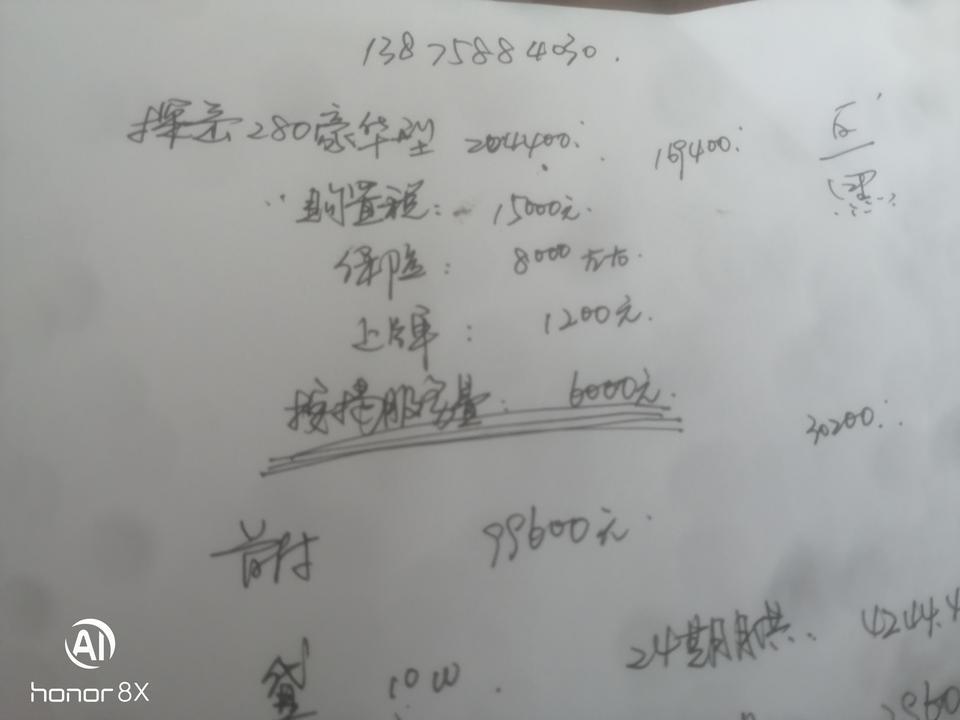 13875884030.
探岳280豪华型 204400: 169400: 白
购置税: 15000元. 黑
保险: 8000左右.
上牌: 1200元.
按揭服务费: 6000元.
30200:
首付 99600元.
贷 10W. 24期月供: 4244.4
AI
honor 8X